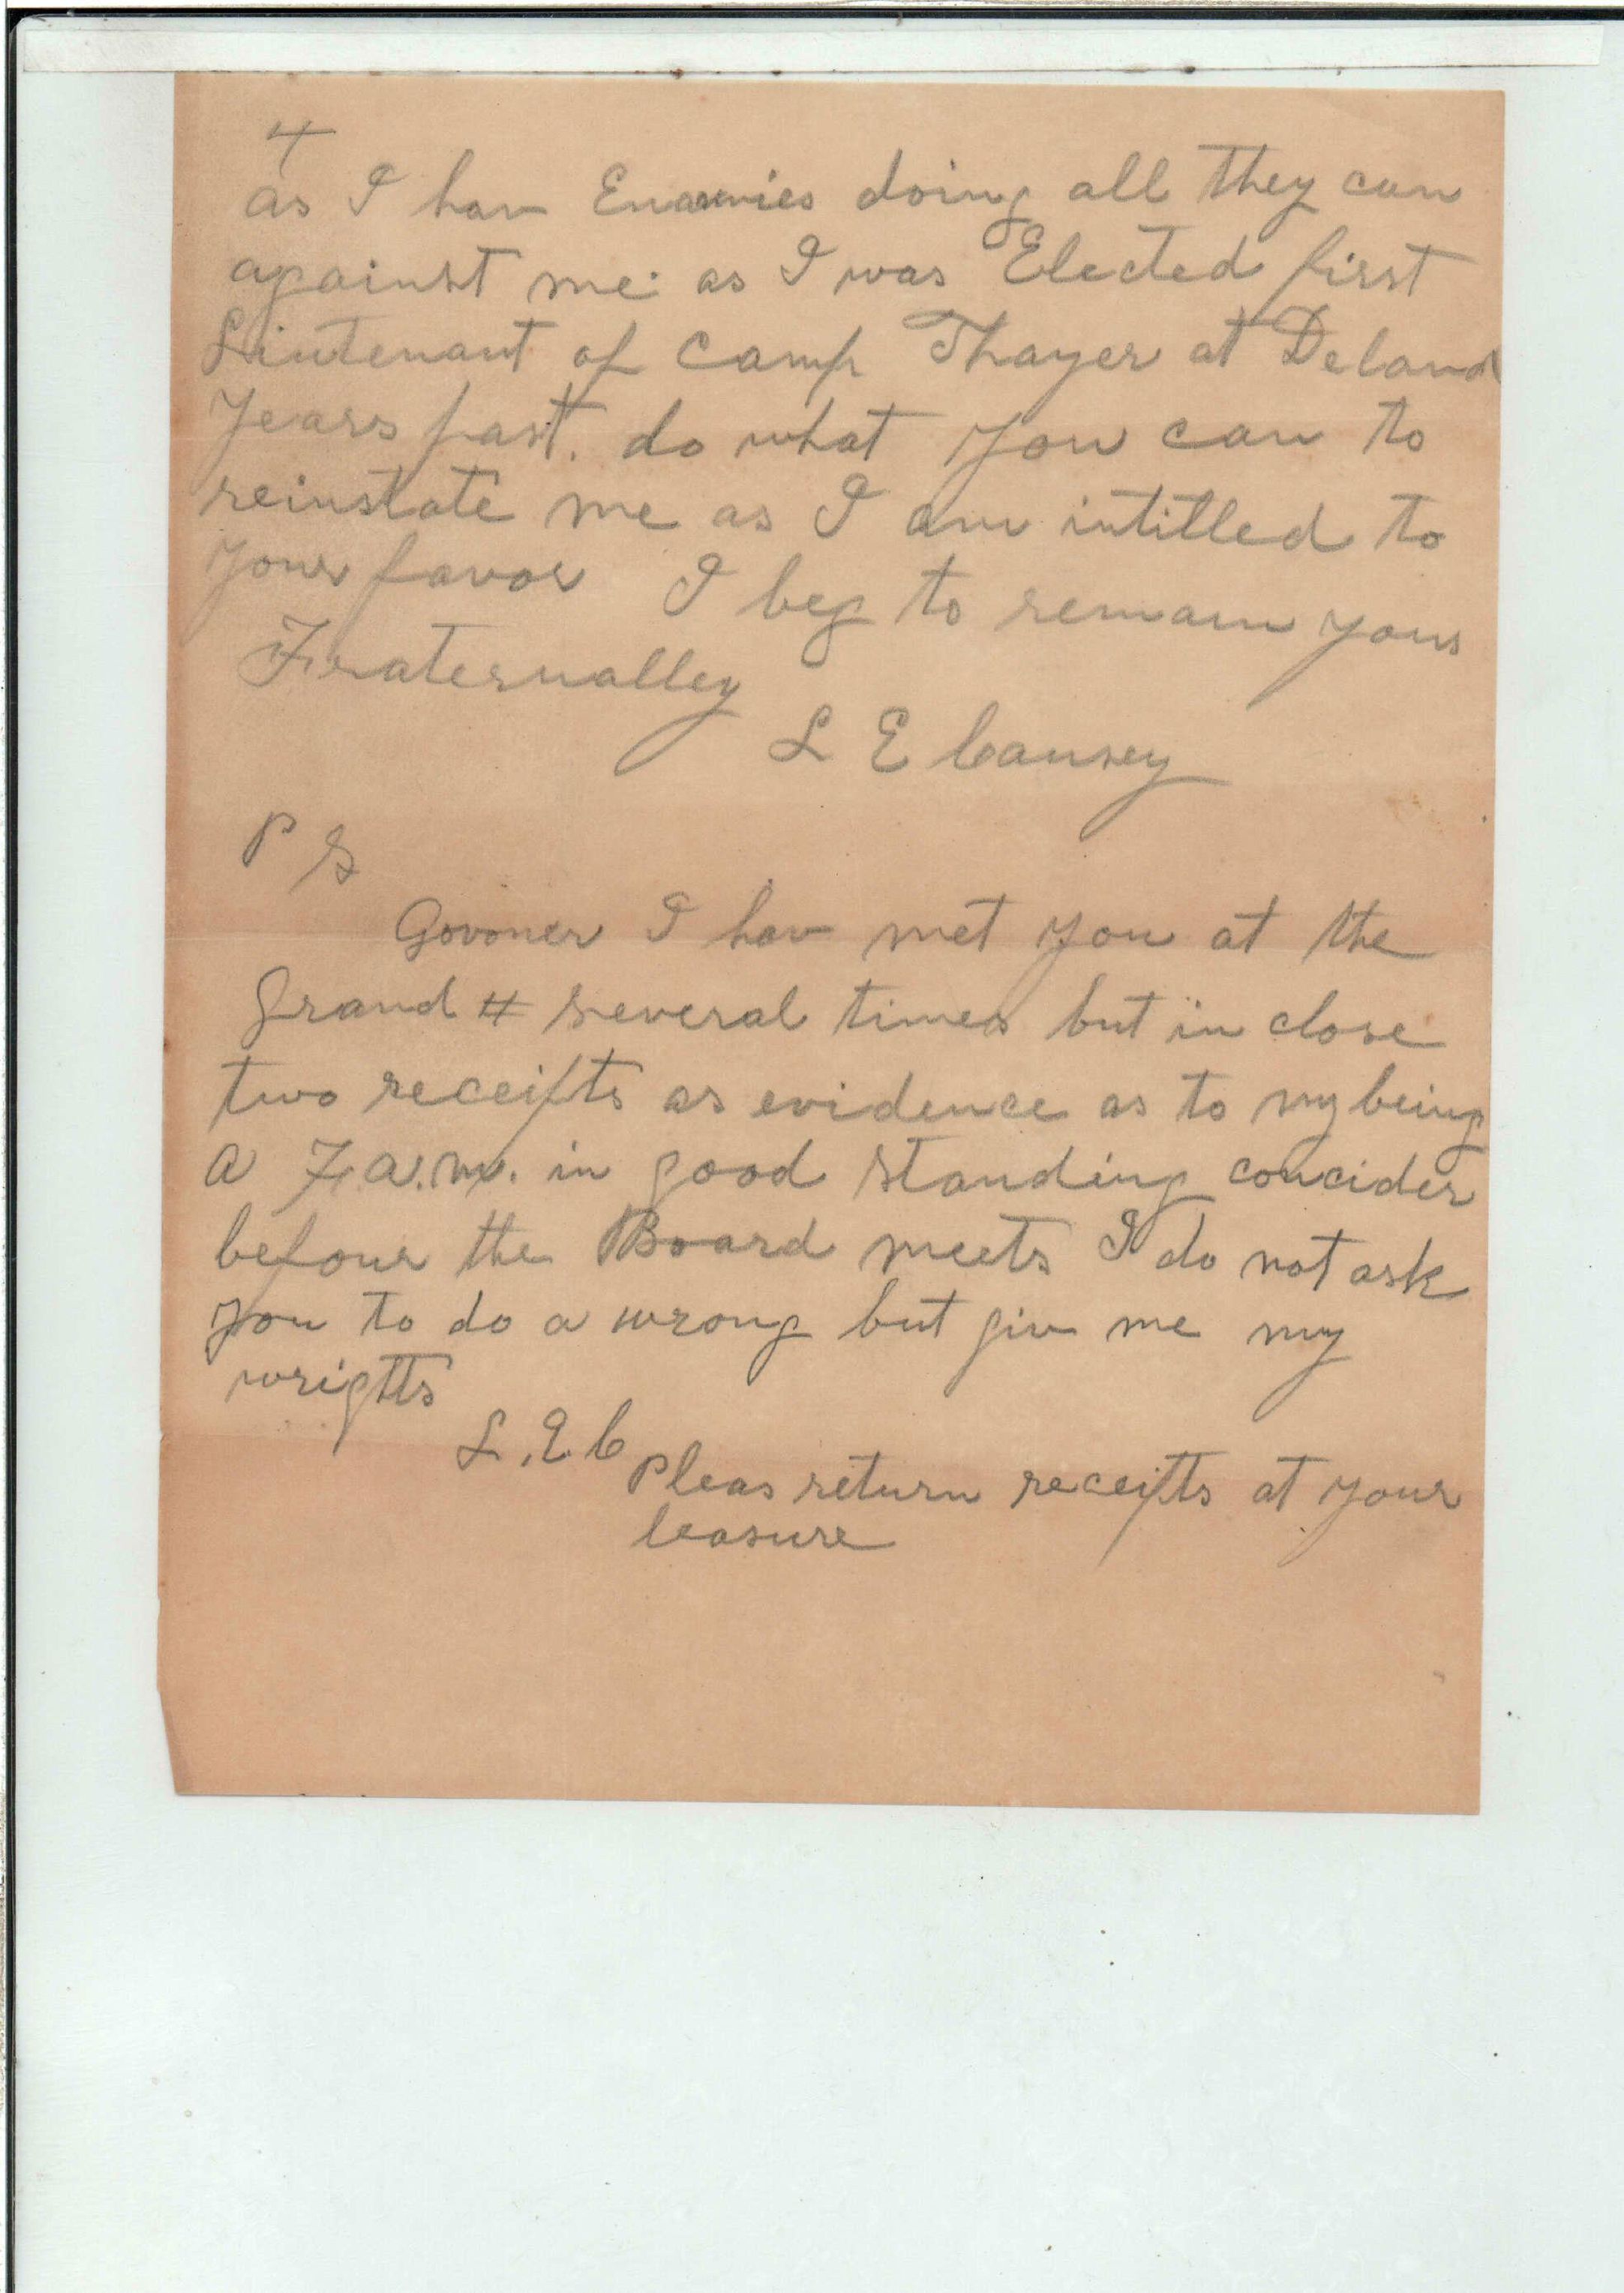 4
as I hav Enamies doing all they can
against me. as I was Elected first
Lieutenant of Camp Thayer at Deland
years past. do what you can to
reinstate me as I am intitled to
your favor I beg to remain yours
Fraternalley
L E Causey
P S
Govoner I hav met you at the
Grand # several times but in close
two receipts as evidence as to my being
a F. a. m. in good standing concider
befour the Board meets I do not ask
you to do a wrong but giv me my
wrigtts
L. E. C
Pleas return receipts at your
leasure